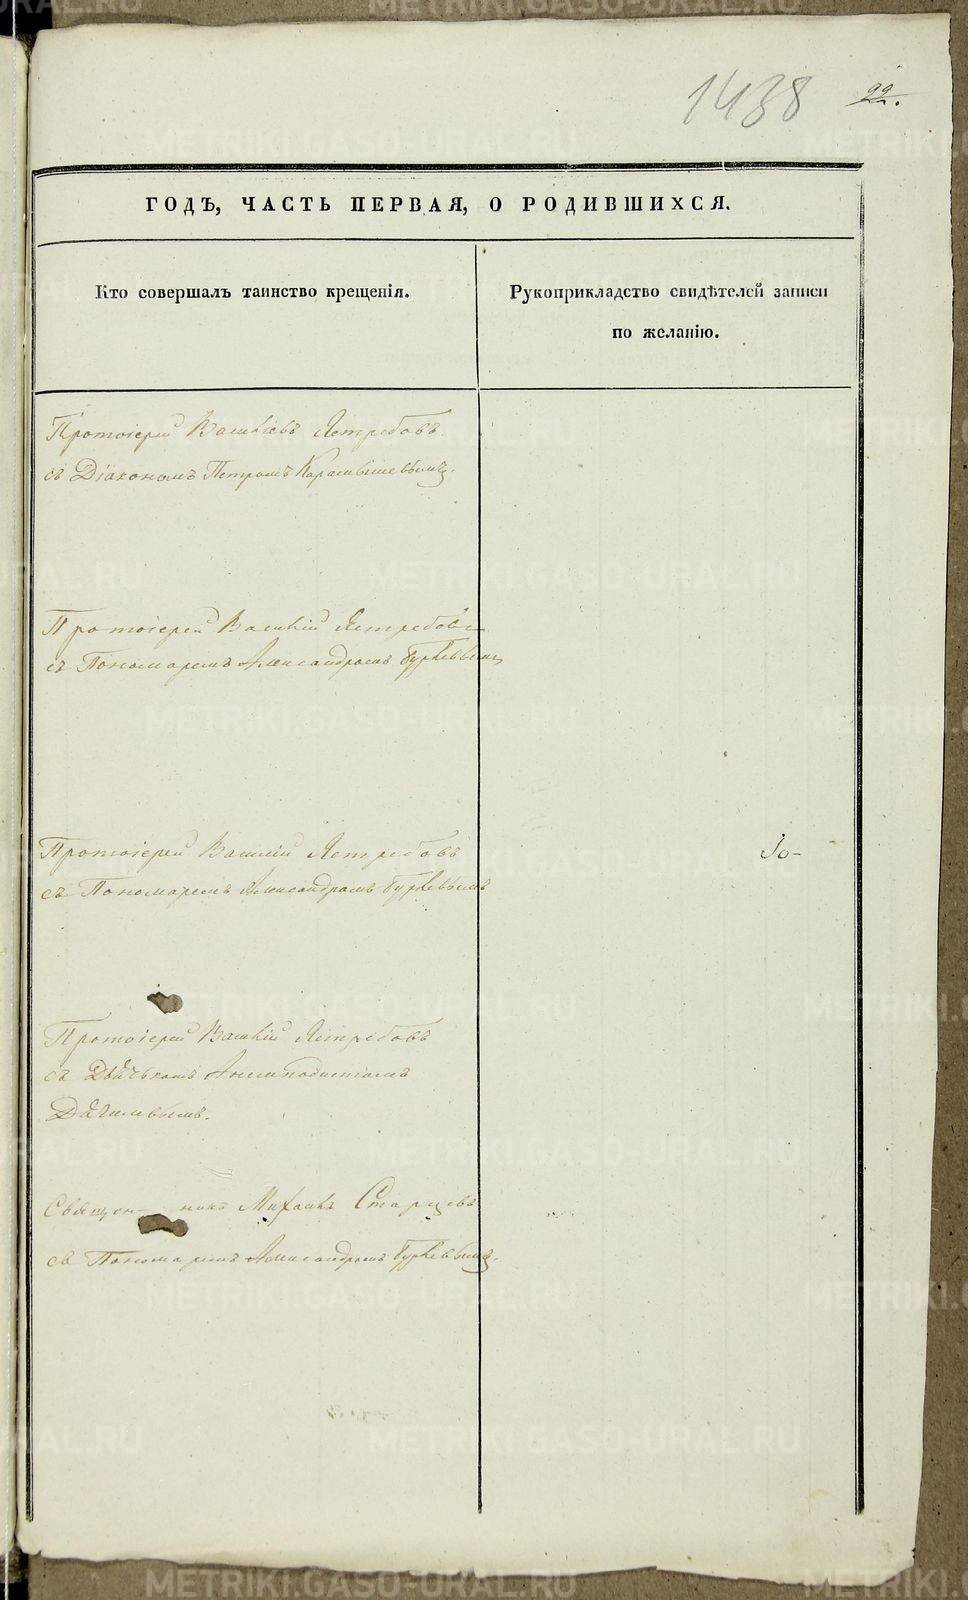 1438 22.
ГОДЪ, ЧАСТЬ ПЕРВАЯ, О РОДИВШИХСЯ.
Кто совершалъ таинство крещенія.
Рукоприкладство свидѣтелей записи
по желанію.
Протоіерей Василій Ястребовъ
съ Діакономъ Петромъ Карамышевымъ.
Протоіерей Василій Ястребовъ
съ Пономаремъ Александромъ
Протоіерей Василій Ястребовъ
съ Пономаремъ Александромъ
Протоіерей Василій Ястребовъ
съ Дьячкомъ
Священникъ Михаилъ Старцевъ
съ Пономаремъ Александромъ
METRIKI.GASO-URAL.RU